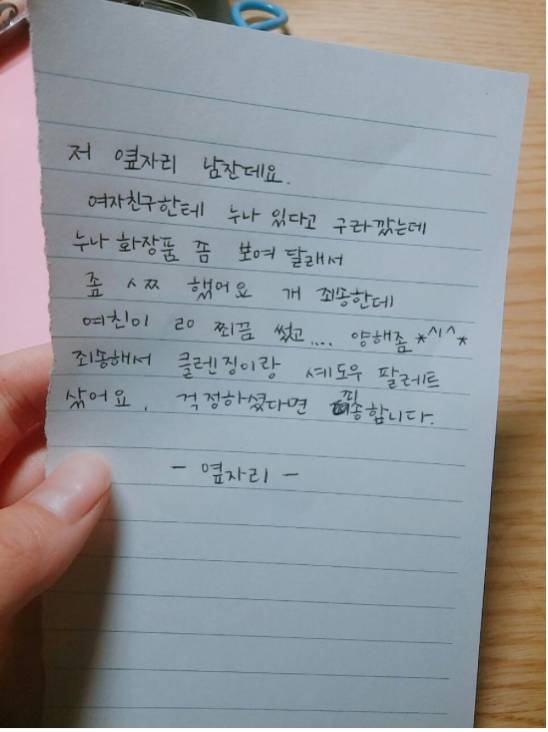 저 옆자리 남잔데요.
여자친구한테 누나 있다고 구라깠는데
누나 화장품 좀 보여 달래서
좀 ㅅㅉ 했어요 개 죄송한데
여친이 ㄹㅇ 찌끔 썼고.... 양해좀 *^^*
죄송해서 클렌징이랑 셰도우 팔레트
샀어요. 걱정하셨다면 죄송합니다.
- 옆자리 -